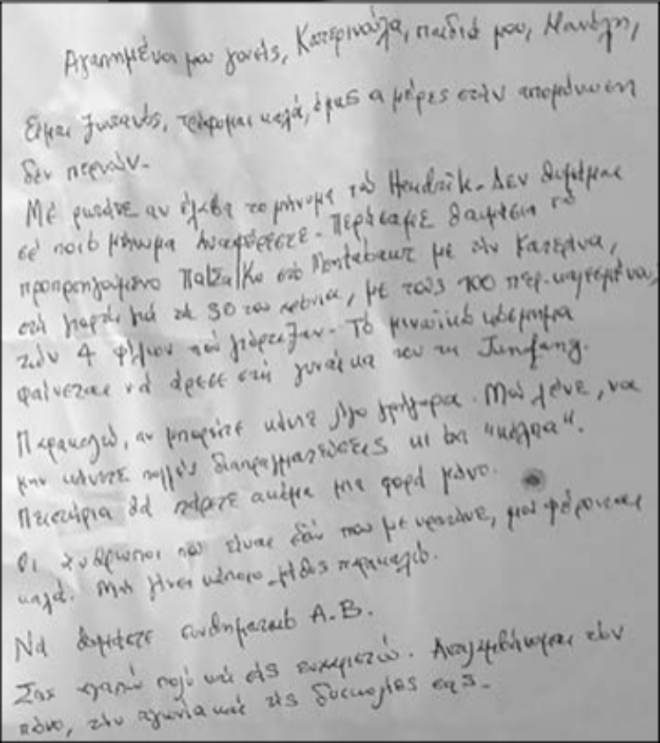 Αγαπημένοι μου γονείς, Κατερινούλα, παιδιά μου, Μανώλη,
Είμαι ζωντανός, τρέφομαι καλά, όμως οι μέρες στην απομόνωση
δεν περνούν.
Με ρωτάνε αν έλαβα το μήνυμα του Hendrik. Δεν θυμάμαι
σε ποιό μήνυμα αναφέρεστε. Περάσαμε θαυμάσια το
προπροηγούμενο Πάσχα στο με την Κατερίνα,
στη γιορτή γιά τα 50 του χρόνια, με τους 100 περ. καλεσμένους
των 4 φίλων που γιόρτεζαν. Το μινωϊκό κόσμημα
φαίνεται νά άρεσε στη γυναίκα του τη Junfang.
Παρακαλώ, αν μπορείτε κάντε λίγο γρήγορα. Μου λένε, να
μην κάνετε πολλές διαπραγματεύσεις κι όχι "κόλπα".
Πειστήρια θά πάρετε ακόμα μια φορά μόνο.
Οι άνθρωποι που είναι εδώ που με κρατάνε, μου φέρονται
καλά. Μην γίνει κάποιο λάθος παρακαλώ.
Νά θυμάστε συνθηματικό Α.Β.
Σας αγαπώ πολύ καί σας ευχαριστώ. Αντιλαμβάνομαι τον
πόνο, την αγωνία καί τις δυσκολίες σας.